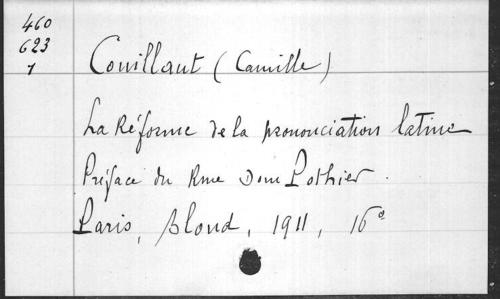 460
623
1
Couillaut (Camille)
La Réforme de la prononciation latine
Préface du Rme Dom Pothier.
Paris, Bloud, 1911, 16°